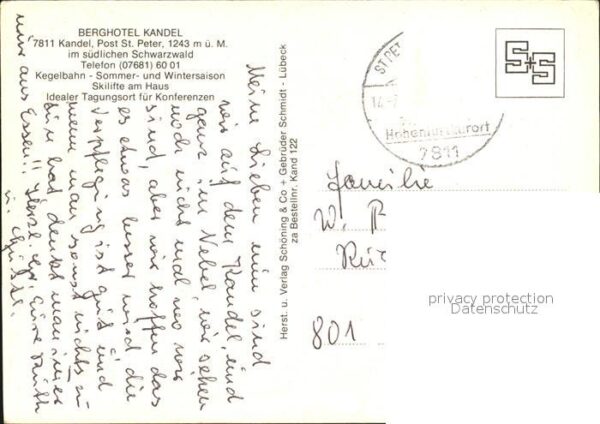 BERGHOTEL KANDEL
7811 Kandel, Post St. Peter, 1243 m ü. M.
im südlichen Schwarzwald
Telefon (07681) 60 01
Kegelbahn - Sommer- und Wintersaison
Skilifte am Haus
Idealer Tagungsort für Konferenzen
Meine Lieben nun sind
wir auf dem Kandel, und
ganz im Nebel, wir sehen
noch nicht mal wo wir
sind, aber wir hoffen das
es etwas besser wird die
Verpflegung ist gut und
wenn man sonst nichts zu
tun hat denkt man immer
nur ans Essen!! Herzl. Eure
u. Grüße.
Herst. u. Verlag Schöning & Co + Gebrüder Schmidt - Lübeck
za Bestellnr. Kand 122
S+S
ST. PET
14.
Höhenluftkurort
7811
Familie
W. R
801
privacy protection
Datenschutz